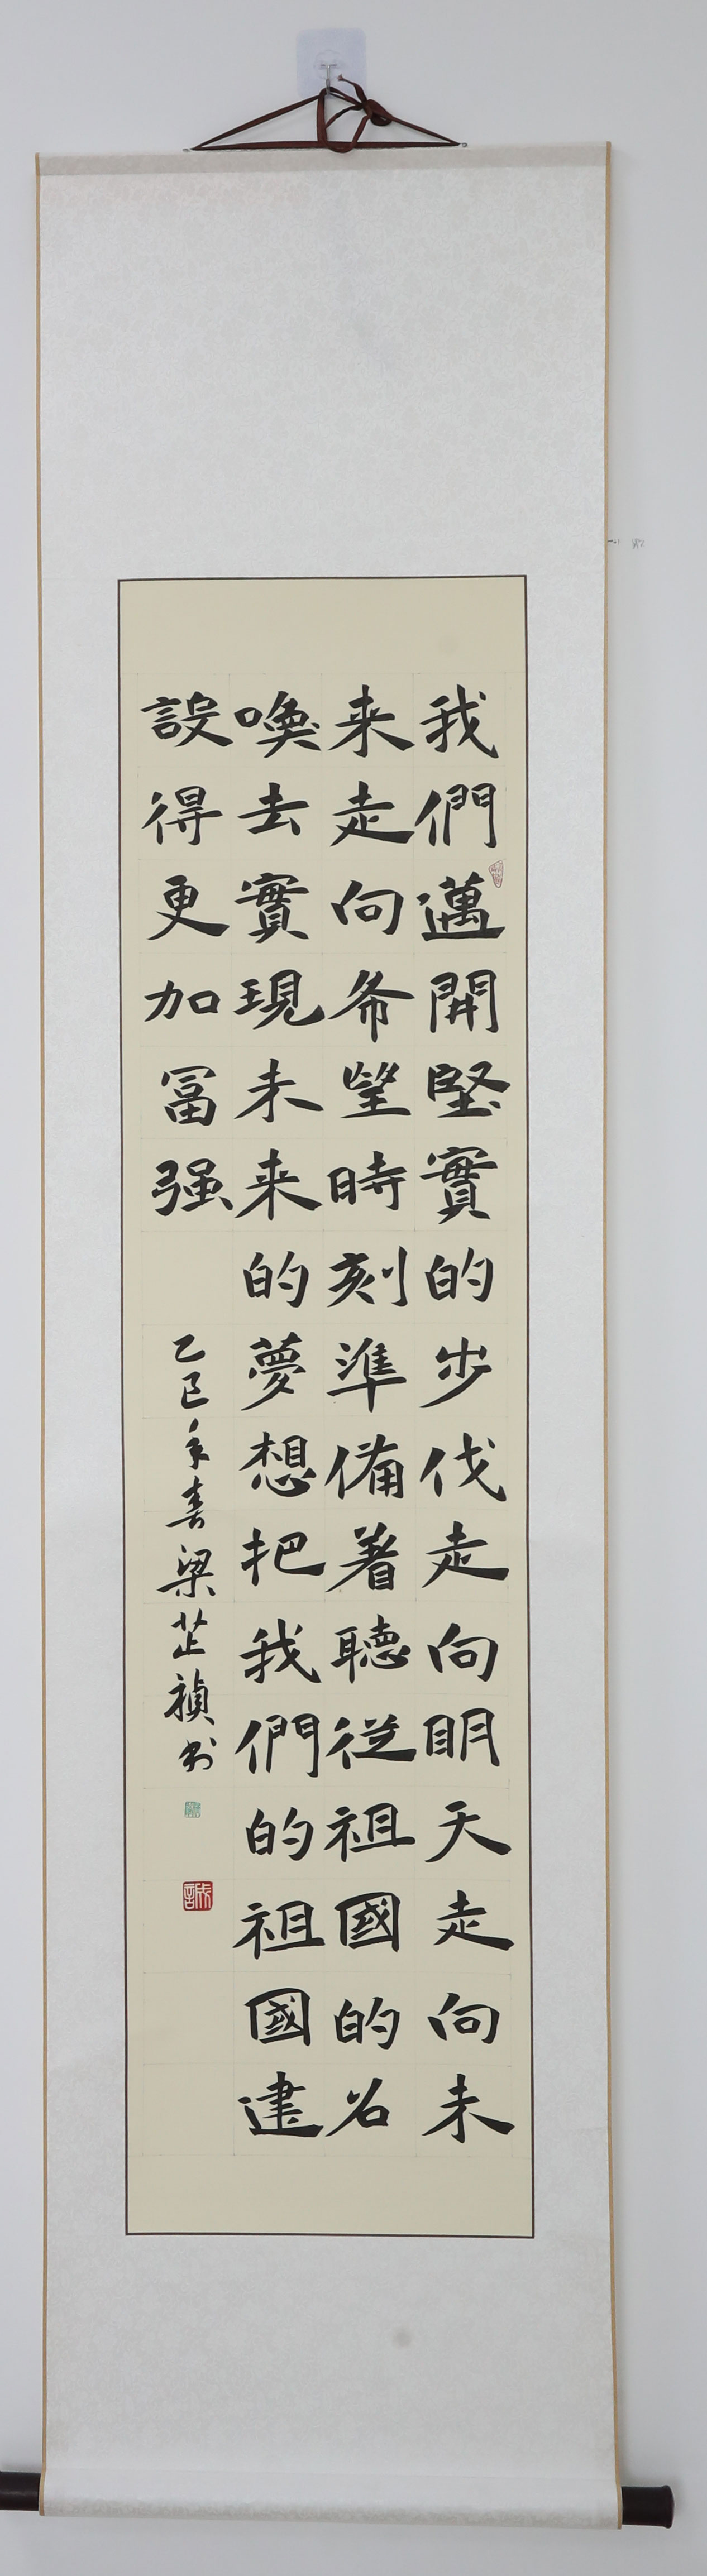 我們邁開堅實的步伐走向明天走向未
来走向希望時刻準備着聽從祖國的召
喚去實現未来的夢想把我們的祖國建
設得更加冨强
乙巳年春梁芷禎书
誠